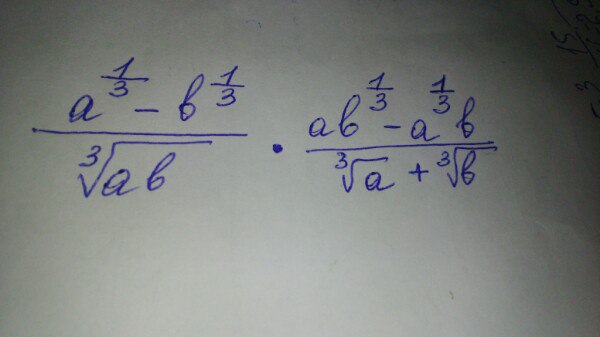 a^{1/3} - b^{1/3} / ∛(ab) · ab^{1/3} - a^{1/3}b / ∛a + ∛b